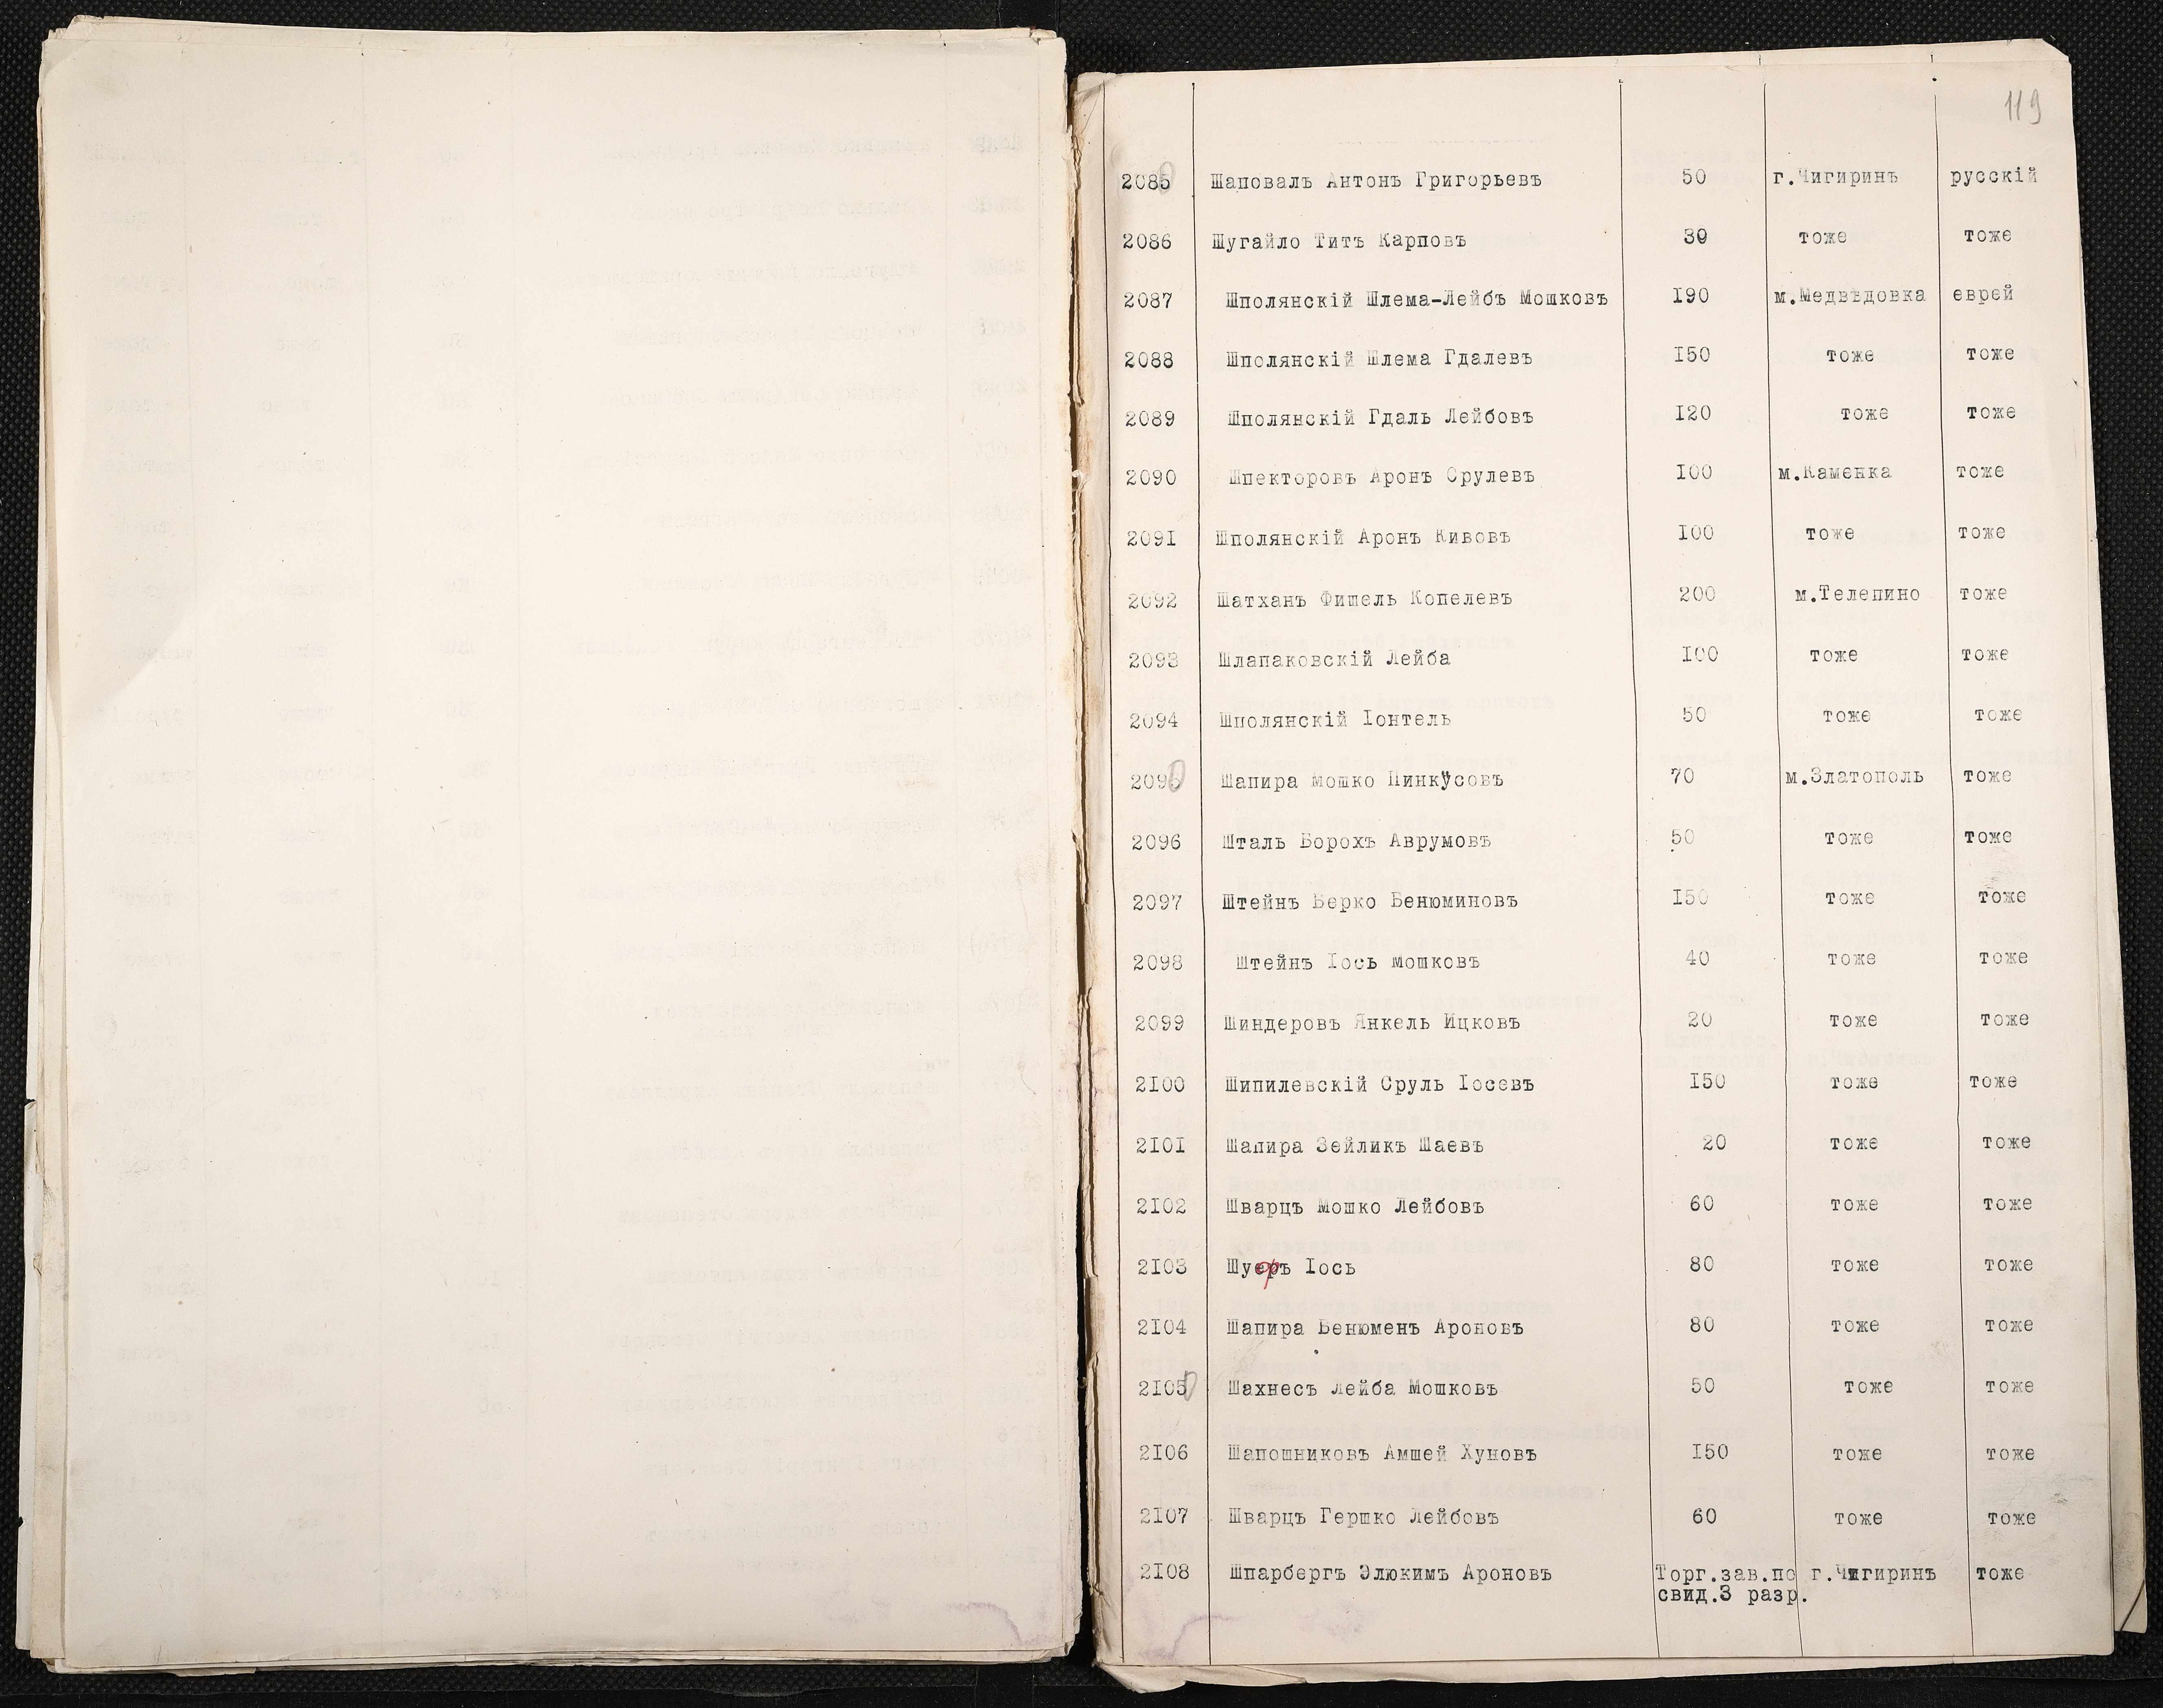 119
2085 Шаповалъ Антонъ Григорьевъ 50 г.Чигиринъ русскій
2086 Шугайло Титъ Карповъ 30 тоже тоже
2087 Шполянскій Шлема-Лейбъ Мошковъ I90 м.Медвѣдовка еврей
2088 Шполянскій Шлема Гдалевъ I50 тоже тоже
2089 Шполянскій Гдаль Лейбовъ I20 тоже тоже
2090 Шпекторовъ Аронъ Срулевъ I00 м.Каменка тоже
209I Шполянскій Аронъ Кивовъ I00 тоже тоже
2092 Шатханъ Фишель Копелевъ 200 м.Телепино тоже
2093 Шлапаковскій Лейба I00 тоже тоже
2094 Шполянскій Іонтель 50 тоже тоже
2095 Шапира Мошко Пинкусовъ 70 м.Златополь тоже
2096 Шталь Борохъ Аврумовъ 50 тоже тоже
2097 Штейнъ Берко Бенюминовъ I50 тоже тоже
2098 Штейнъ Іось Мошковъ 40 тоже тоже
2099 Шиндеровъ Янкель Ицковъ 20 тоже тоже
2I00 Шипилевскій Сруль Іосевъ I50 тоже тоже
2I0I Шапира Зейликъ Шаевъ 20 тоже тоже
2I02 Шварцъ Мошко Лейбовъ 60 тоже тоже
2I03 Шуеръ Іось 80 тоже тоже
2I04 Шапира Бенюменъ Ароновъ 80 тоже тоже
2I05 Шахнесъ Лейба Мошковъ 50 тоже тоже
2I06 Шапошниковъ Амшей Хуновъ I50 тоже тоже
2I07 Шварцъ Гершко Лейбовъ 60 тоже тоже
2I08 Шпарбергъ Элюкимъ Ароновъ Торг.зав.по г.Чигиринъ тоже
свид.3 разр.